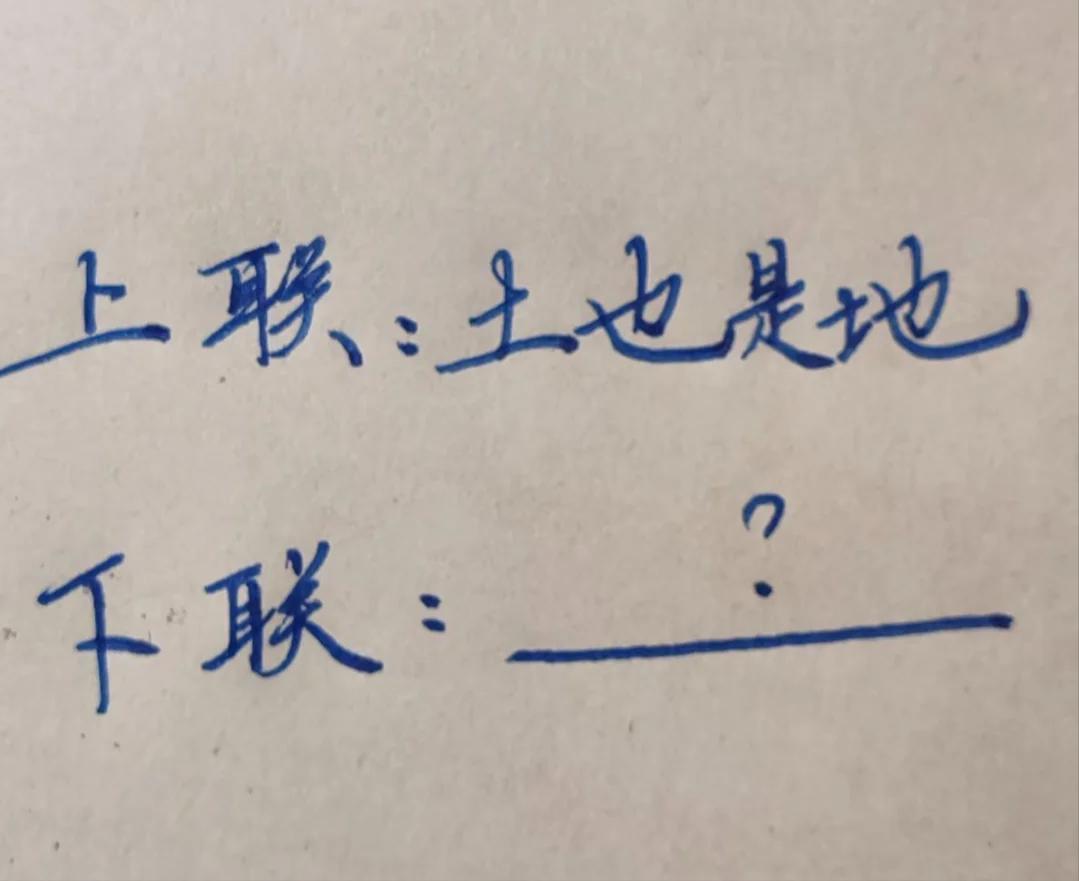 上联:土也是地
下联:?